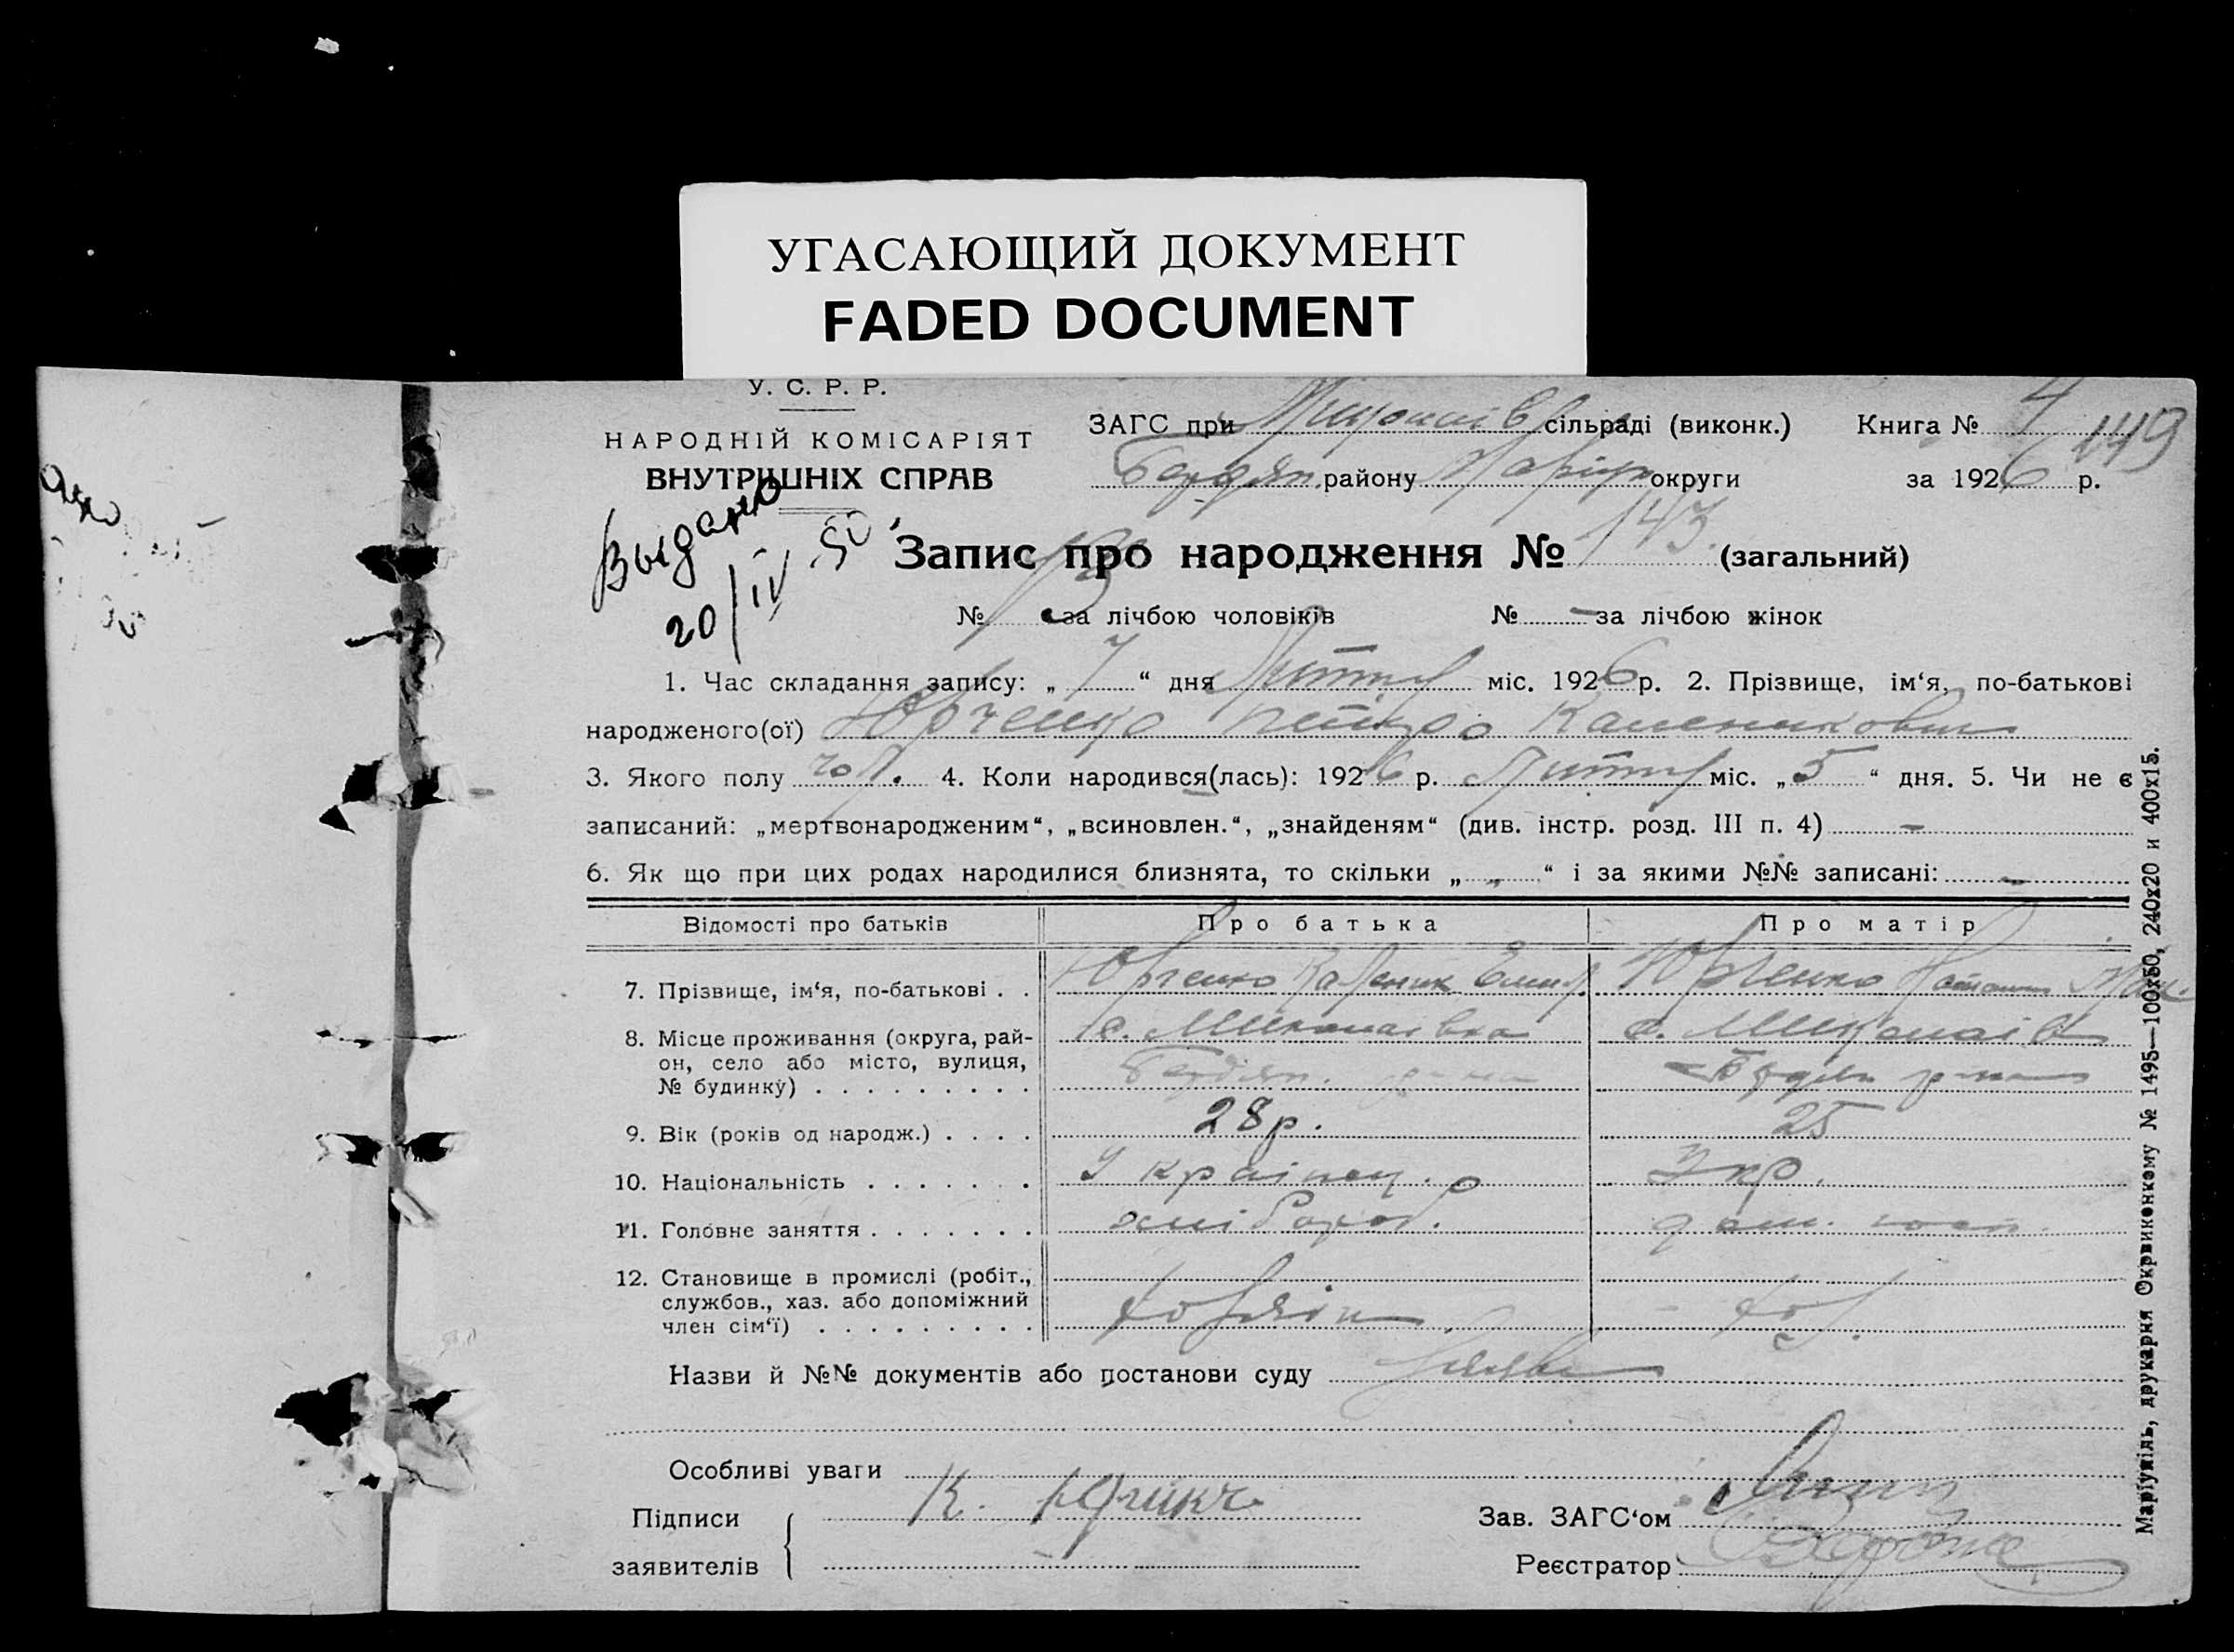 УГАСАЮЩИЙ ДОКУМЕНТ
FADED DOCUMENT
У. С. Р. Р.
НАРОДНІЙ КОМІСАРІЯТ
ВНУТРІШНІХ СПРАВ
ЗАГС при сільраді (виконк.) Книга № 4
Бердян. району Маріуп округи за 1926 р.
Выдано
20/IV-50
Запис про народження № 143. (загальний)
№ за лічбою чоловіків № – за лічбою жінок
1. Час складання запису: „ 7 “ дня Лютня міс. 1926 р. 2. Прізвище, ім‘я, по-батькові
народженого(ої) Юрченко Петро Каленикович
3. Якого полу чол. 4. Коли народився(лась): 1926 р. Лютня міс. „ 5 “ дня. 5. Чи не є
записаний: „мертвонародженим“, „всиновлен.“, „знайденям“ (див. інстр. розд. III п. 4) –
6. Як що при цих родах народилися близнята, то скільки „ „ “ і за якими №№ записані: –
Відомості про батьків Про батька Про матір
7. Прізвище, ім‘я, по-батькові . . Юрченко Каленик Юрченко
8. Місце проживання (округа, рай- с. Миколаївка с. Миколаїв
он, село або місто, вулиця,
№ будинку) . . . . . . . . . Бердян. Бердян
9. Вік (років од народж.) . . . . 28 р. 25
10. Національність . . . . . . . Українец. Укр.
11. Головне заняття . . . . . . . хлібороб. дом. госп.
12. Становище в промислі (робіт.,
службов., хаз. або допоміжний
член сім‘ї) . . . . . . . . . хозяїн
Назви й №№ документів або постанови суду
Особливі уваги
Підписи К.
заявителів
Зав. ЗАГС‘ом
Реєстратор
Маріупіль, друкарня Окрвиконкому № 1495—100х50, 240х20 и 400х15.